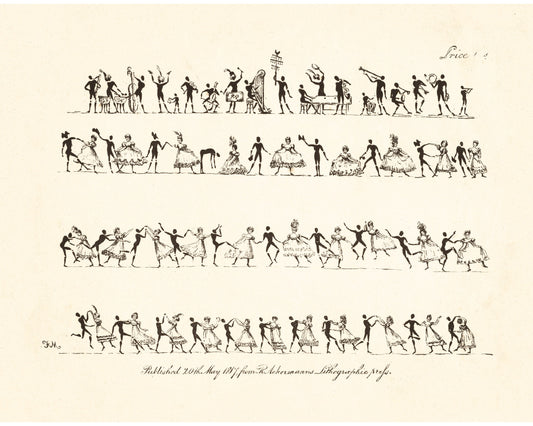 Price
Published 20th May 1817 from R. Ackermanns Lithographic press.